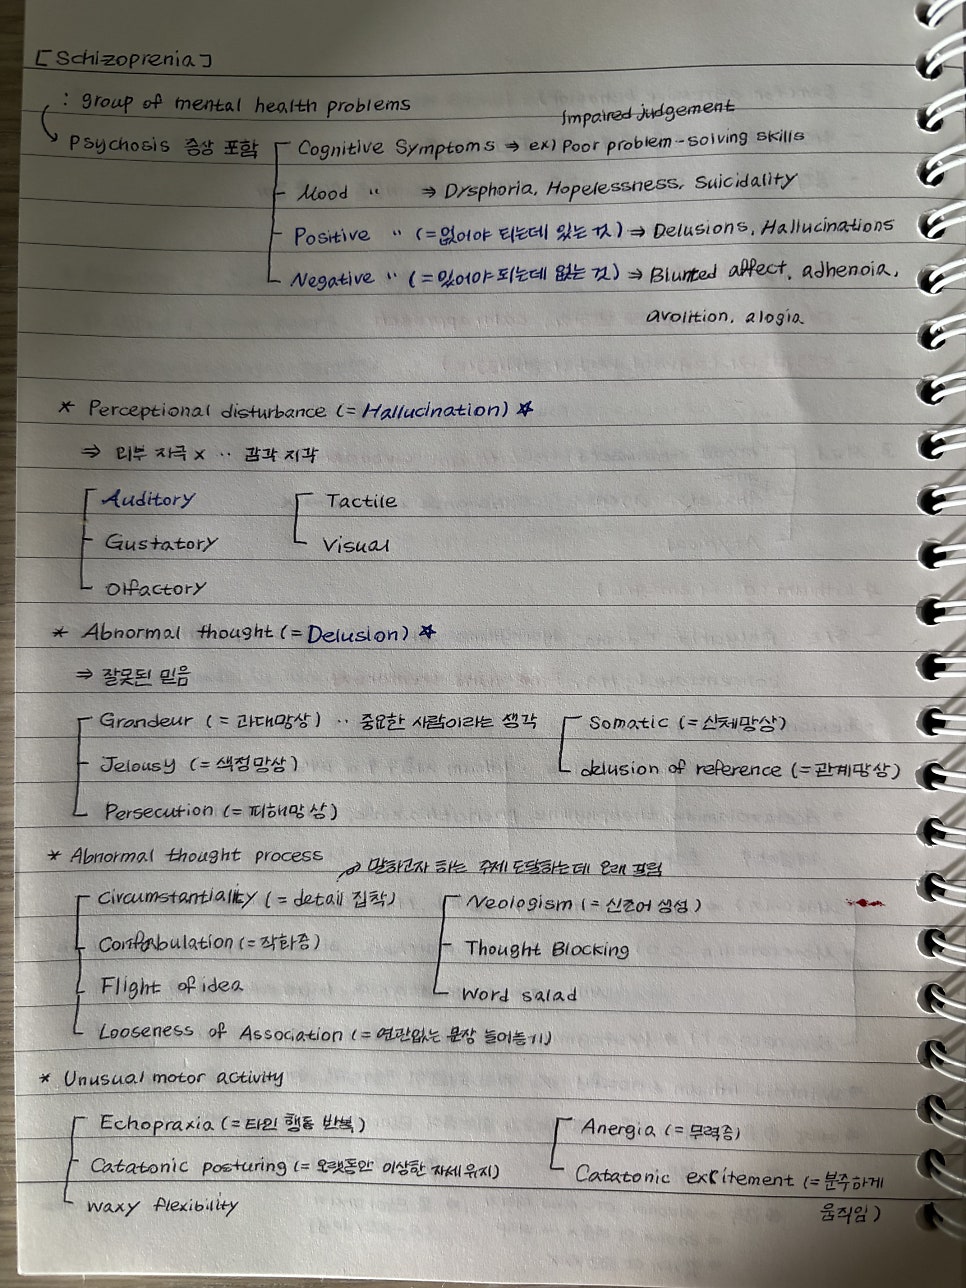 [Schizoprenia]
: group of mental health problems
Impaired judgement
Psychosis 증상 포함 Cognitive Symptoms ⇒ ex) Poor problem-solving skills
Mood " ⇒ Dysphoria, Hopelessness, Suicidality
Positive " (=없어야 되는데 있는 것) ⇒ Delusions, Hallucinations
Negative " (=있어야 되는데 없는 것) ⇒ Blunted affect, adhenoia,
avolition, alogia
* Perceptional disturbance (= Hallucination) ☆
⇒ 외부 자극 x ·· 감각 지각
Auditory Tactile
Gustatory Visual
Olfactory
* Abnormal thought (= Delusion) ☆
⇒ 잘못된 믿음
Grandeur (= 과대망상) ·· 중요한 사람이라는 생각 Somatic (= 신체망상)
Jelousy (= 색정망상) delusion of reference (= 관계망상)
Persecution (= 피해망상)
* Abnormal thought process
↗ 말하고자 하는 주제 도달하는데 오래 걸림
Circumstantiality (= detail 집착) Neologism (= 신조어 생성)
Confabulation (= 작화증) Thought Blocking
Flight of idea Word salad
Looseness of Association (= 연관없는 문장 늘어놓기)
* Unusual motor activity
Echopraxia (= 타인 행동 반복) Anergia (= 무력증)
Catatonic posturing (= 오랫동안 이상한 자세 유지) Catatonic excitement (= 분주하게
waxy flexibility 움직임)